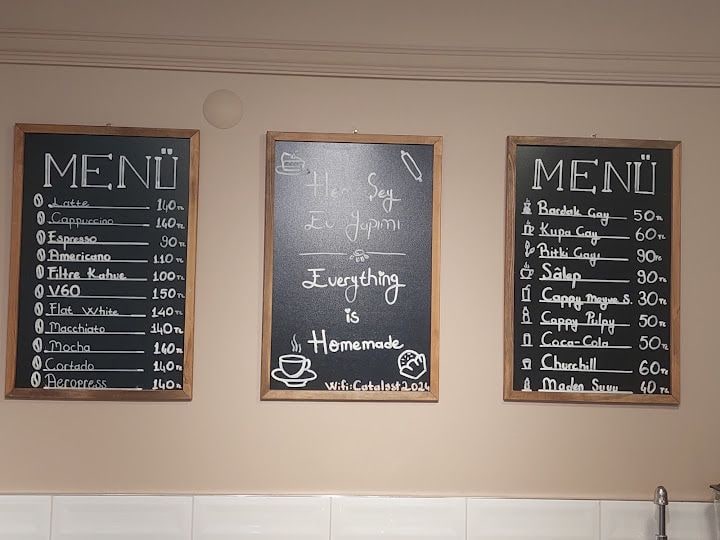 MENÜ
Latte 140 TL
Cappuccino 140 TL
Espresso 90 TL
Americano 110 TL
Filtre Kahve 100 TL
V60 150 TL
Flat White 140 TL
Macchiato 140 TL
Mocha 140 TL
Cortado 140 TL
Aeropress 140 TL
Her Şey
Ev Yapımı
Everything
is
Homemade
Wifi:Catalsst2024
MENÜ
Bardak Çay 50 TL
Kupa Çay 60 TL
Bitki Çayı 90 TL
Salep 90 TL
Cappy Meyve S. 30 TL
Cappy Pulpy 50 TL
Coca-Cola 50 TL
Churchill 60 TL
Maden Suyu 40 TL